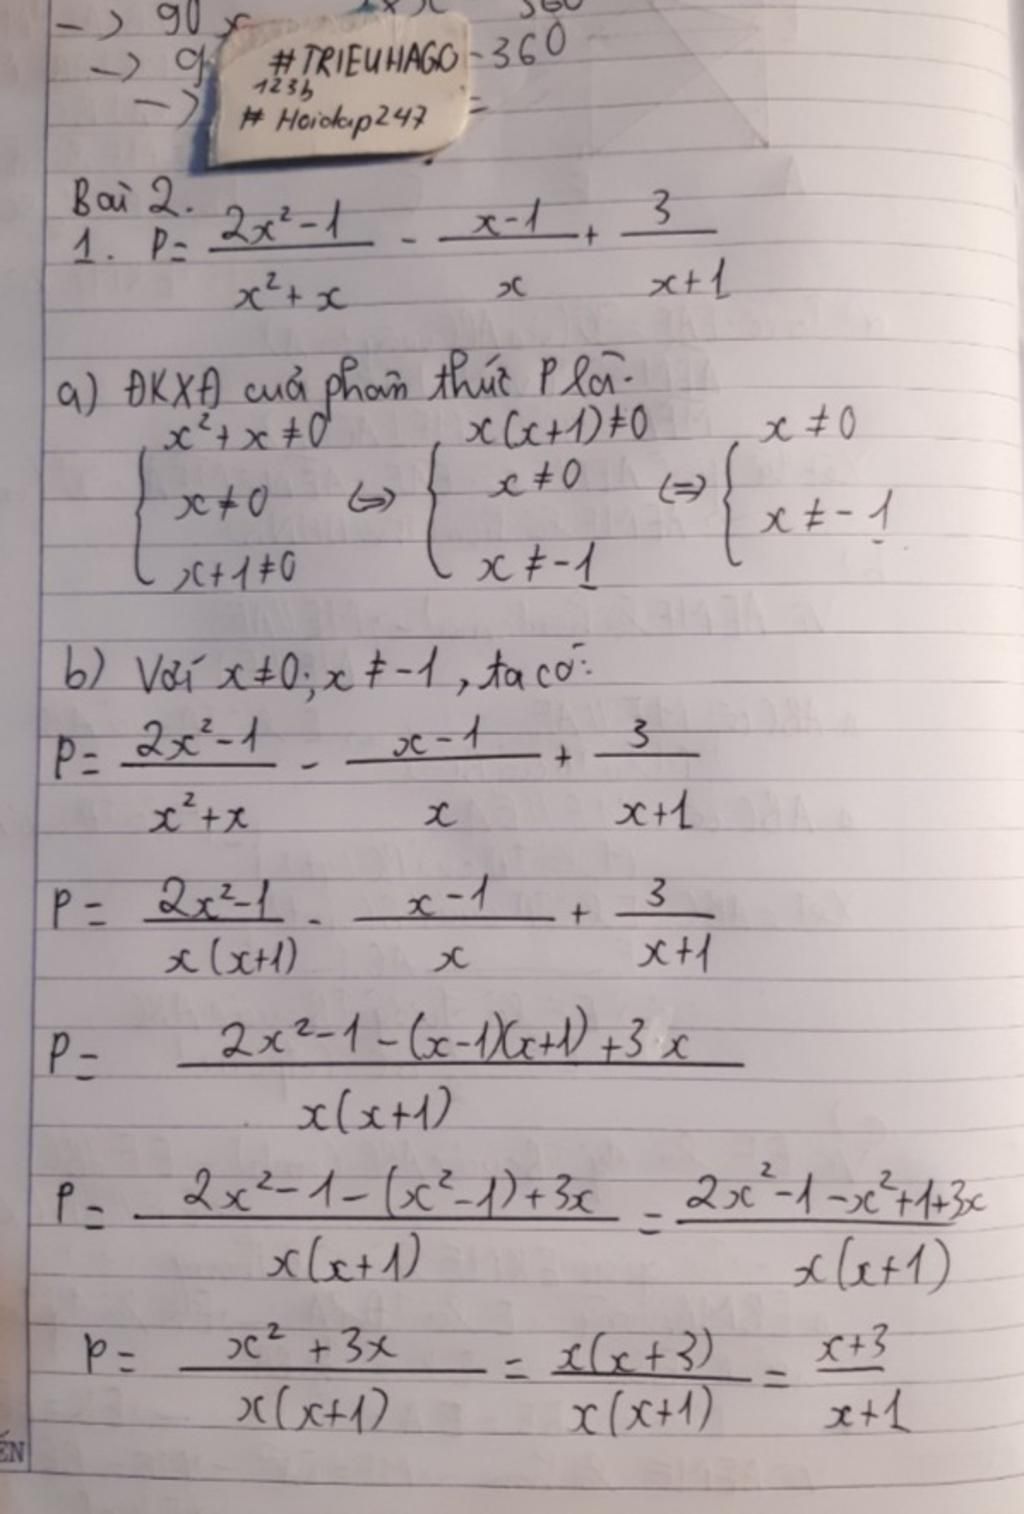 -> 90 x 360
-> 9 -360
-> =
#TRIEUHAGO
123b
# Hoidap247
Bài 2.
1. P = (2x² - 1)/(x² + x) - (x - 1)/x + 3/(x + 1)
a) ĐKXĐ cuả phân thức P là.
{ x² + x ≠ 0 ; x ≠ 0 ; x + 1 ≠ 0 <=> { x(x+1) ≠ 0 ; x ≠ 0 ; x ≠ -1 <=> { x ≠ 0 ; x ≠ -1
b) Với x ≠ 0; x ≠ -1, ta có:
P = (2x² - 1)/(x² + x) - (x - 1)/x + 3/(x + 1)
P = (2x² - 1)/(x(x+1)) - (x - 1)/x + 3/(x + 1)
P = (2x² - 1 - (x-1)(x+1) + 3x)/(x(x+1))
P = (2x² - 1 - (x² - 1) + 3x)/(x(x+1)) = (2x² - 1 - x² + 1 + 3x)/(x(x+1))
P = (x² + 3x)/(x(x+1)) = (x(x+3))/(x(x+1)) = (x+3)/(x+1)
ẾN